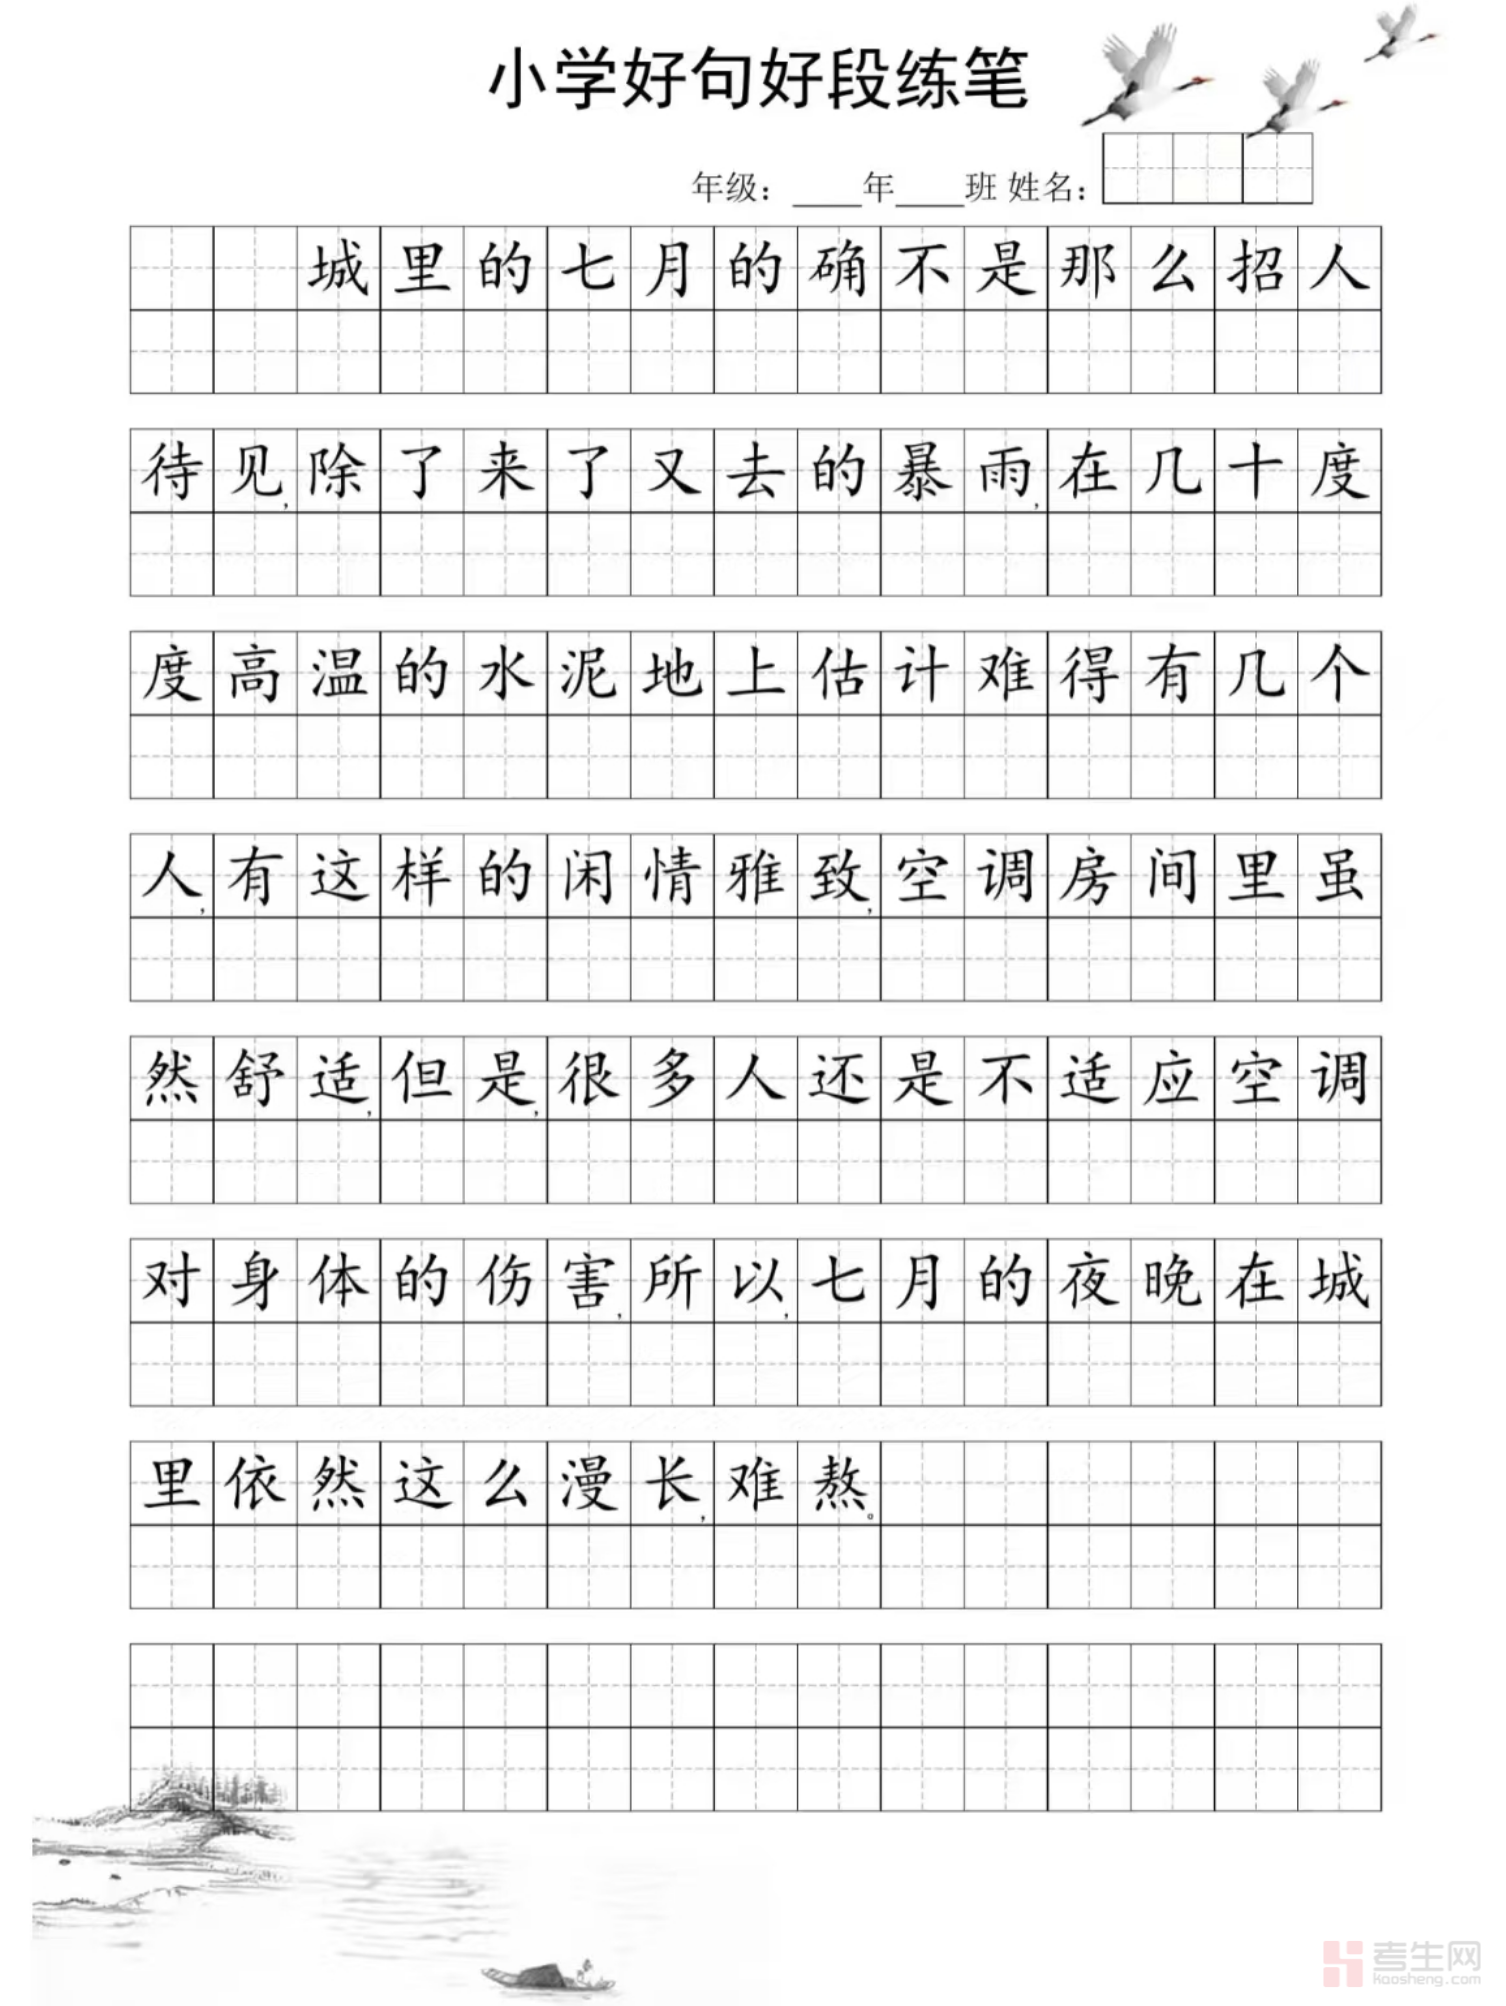 小学好句好段练笔
年级：____年____班 姓名：
城里的七月的确不是那么招人
待见，除了来了又去的暴雨，在几十度
度高温的水泥地上估计难得有几个
人，有这样的闲情雅致，空调房间里虽
然舒适，但是，很多人还是不适应空调
对身体的伤害，所以，七月的夜晚在城
里依然这么漫长，难熬。
考生网
kaosheng.com